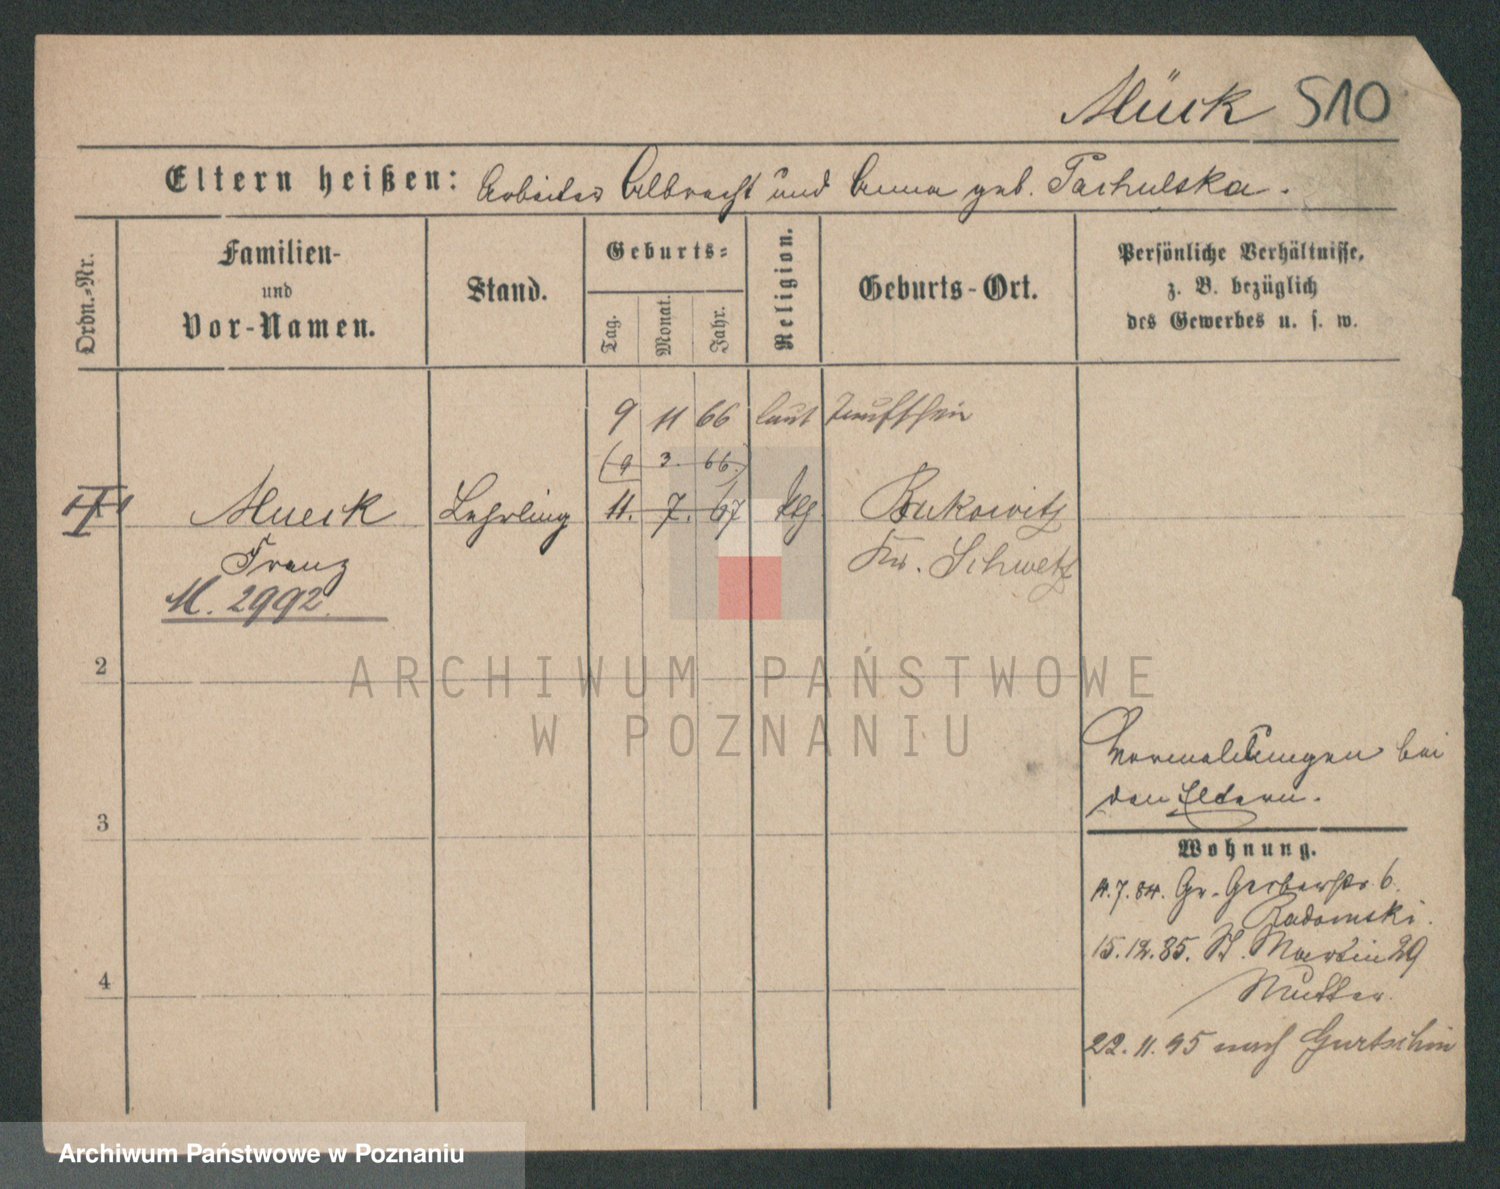 Mück 510
Eltern heißen: Arbeiter Albrecht und Anna geb. Pachulska.
Ordn.-Nr.
Familien-
und
Vor-Namen.
Stand.
Geburts-
Tag.
Monat.
Jahr.
Religion.
Geburts-Ort.
Persönliche Verhältnisse,
z. B. bezüglich
des Gewerbes u. s. w.
9 11 66 laut Taufschein
(9 3. 66.)
1 Mueck Lehrling 11. 7. 67 ktg Bukowitz
Franz Kr. Schwetz
M. 2992.
2
3
4
bei
den Eltern.
Wohnung.
11.7.84. Gr. Gerberstr. 6.
Radomski.
15.12.85. St. Martin 29
Mutter.
22.11.95 nach Gurtschin
ARCHIWUM PAŃSTWOWE
W POZNANIU
Archiwum Państwowe w Poznaniu